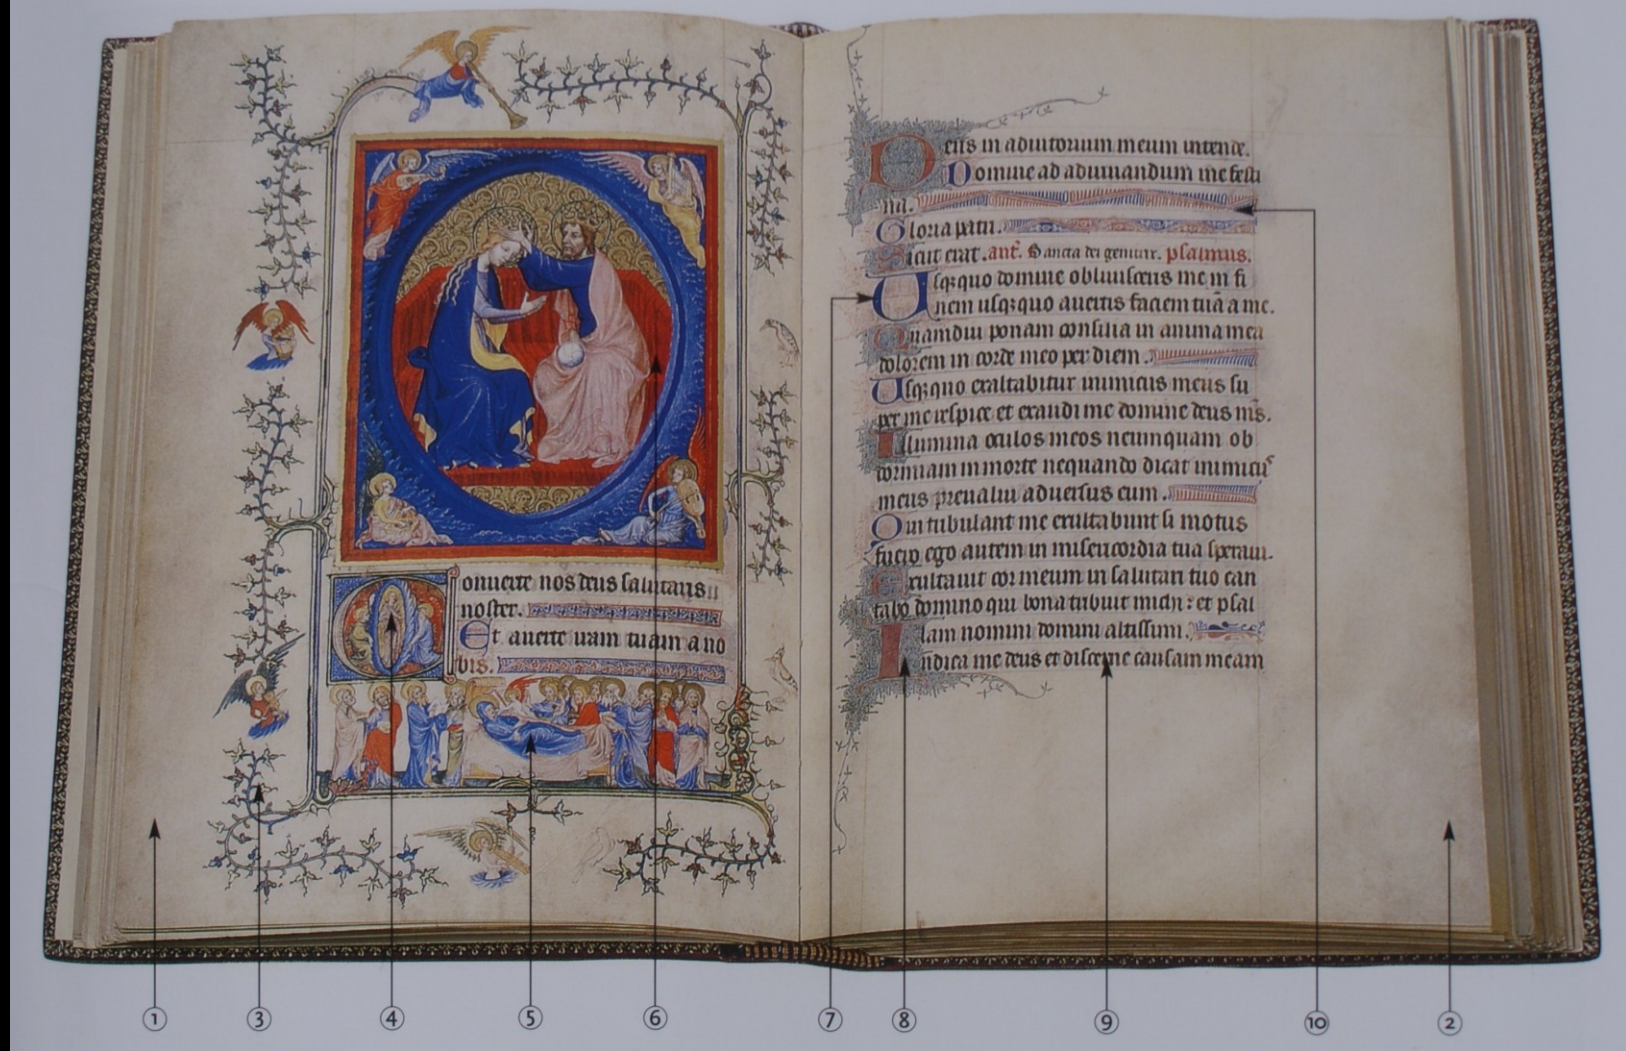 Conuerte nos deus salutaris
noster.
Et auerte iram tuam a no
bis.
Deus in adiutorium meum intende.
Domine ad adiuuandum me festi
na.
Gloria patri.
Sicut erat. ant̃. Sancta dei genitrix. psalmus.
Usqꝫquo domine obliuisceris me in fi
nem usqꝫquo auertis faciem tuã a me.
Quamdiu ponam consilia in anima mea
dolorem in corde meo per diem.
Usqꝫquo exaltabitur inimicus meus su
per me respice et exaudi me domine deus ms̃.
Illumina oculos meos ne umquam ob
dormiam in morte nequando dicat inimicus
meus preualui aduersus eum.
Qui tribulant me exultabunt si motus
fuero ego autem in misericordia tua speraui.
Exultauit cor meum in salutari tuo can
tabo domino qui bona tribuit michi : et psal
lam nomini domini altissimi.
Iudica me deus et discerne causam meam
① ③ ④ ⑤ ⑥ ⑦ ⑧ ⑨ ⑩ ②